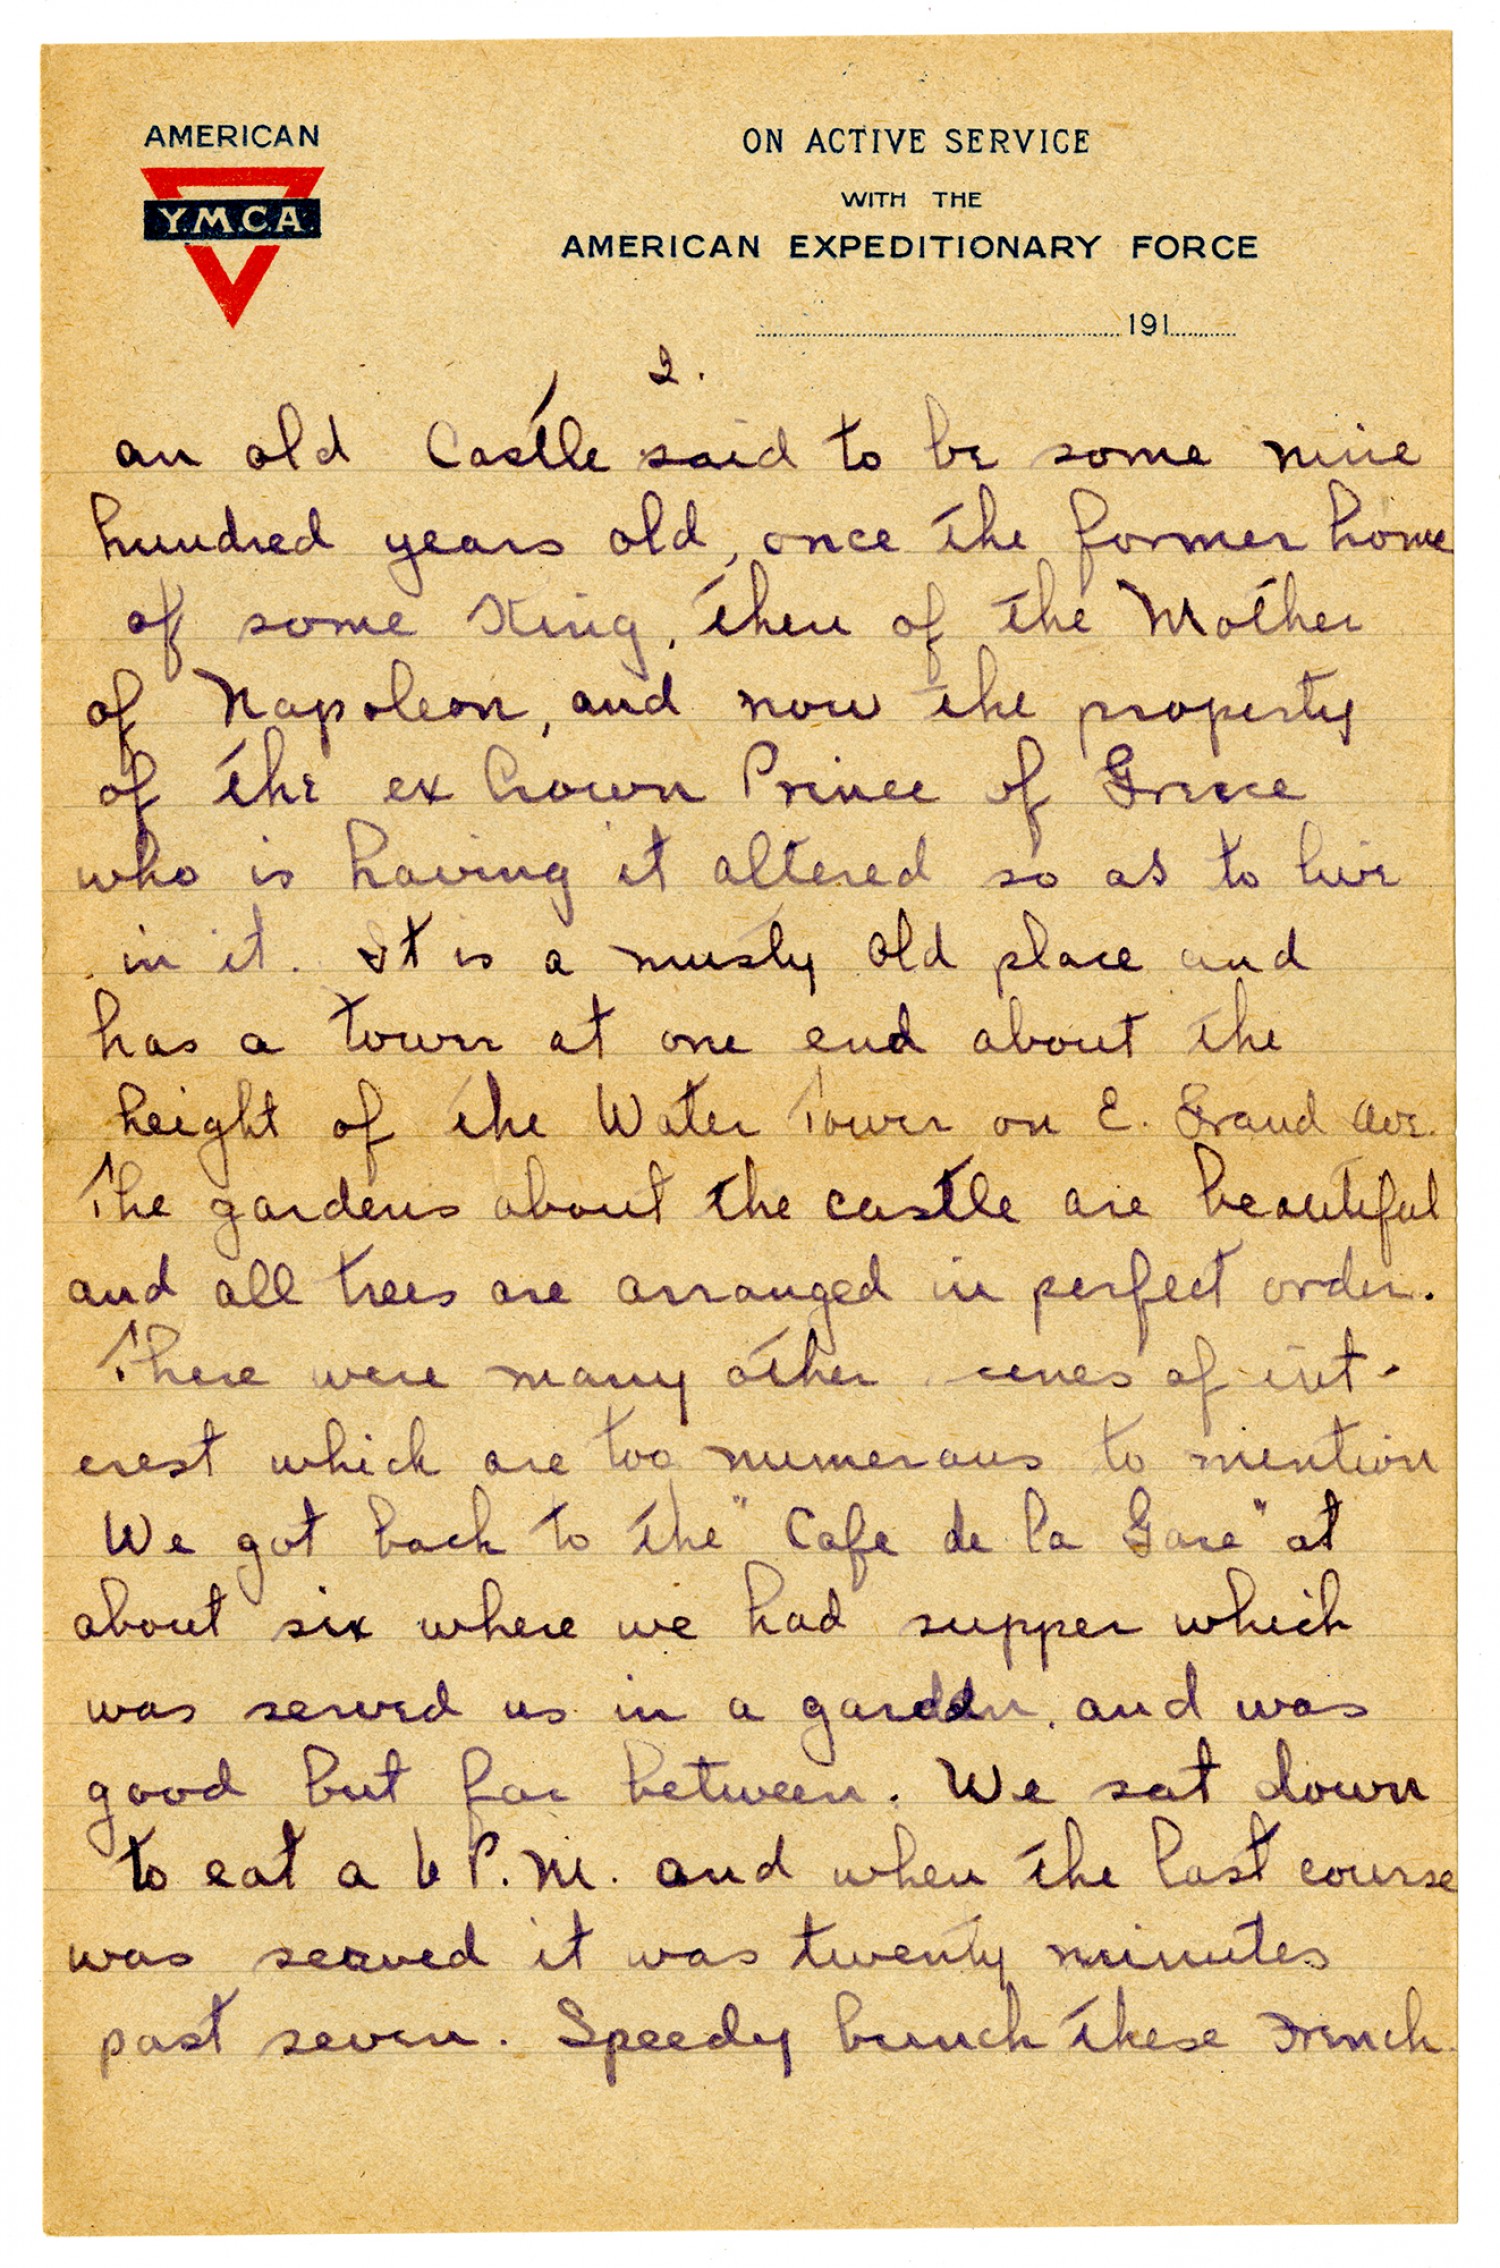 AMERICAN
Y.M.C.A.
ON ACTIVE SERVICE
WITH THE
AMERICAN EXPEDITIONARY FORCE
191
2.
an old Castle said to be some nine
hundred years old, once the former home
of some King, then of the Mother
of Napoleon, and now the property
of the ex Crown Prince of Greece
who is having it altered so as to live
in it. It is a musty old place and
has a tower at one end about the
height of the Water Tower on E. Grand Ave.
The gardens about the castle are beautiful
and all trees are arranged in perfect order.
There were many other cenes of int-
erest which are too numerous to mention
We got back to the "Cafe de la Gare" at
about six where we had supper which
was served us in a garden, and was
good but far between. We sat down
to eat a 6 P.M. and when the last course
was served it was twenty minutes
past seven. Speedy bunch these French